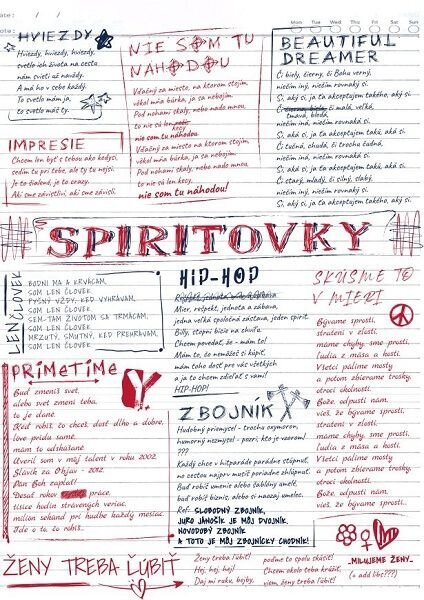 Date: / /
Mon Tue Wed Thu Fri Sat Sun
HVIEZDY
Hviezdy, hviezdy, hviezdy,
svetlo ich života na cestu
nám svieti už navždy.
A má ho v sebe každý.
To svetlo mám ja,
to svetlo máš ty.
NIE SOM TU
NÁHODOU
Vďačný za miesto, na ktorom stojím,
vôkol mňa búrka, ja sa nebojím.
Pod nohami skaly, nebo nado mnou,
to nie sú len
kecy,
nie som tu náhodou.
Vďačný za miesto, na ktorom stojím,
vôkol mňa búrka, ja sa nebojím.
Pod nohami skaly, nebo nado mnou,
to nie sú len kecy,
nie som tu náhodou!
BEAUTIFUL
DREAMER
Či biely, čierny, či Bohu verný,
nečím iný, nečím rovnaký si.
Si, aký si, ja ťa akceptujem takého, aký si.
Či malá, veľká,
tmavá, bledá,
nečím iná, nečím rovnaká si.
Si, aká si, ja ťa akceptujem takú, aká si.
Či tučná, chudá, či trochu čudná,
nečím iná, nečím rovnaká si.
Si, aká si, ja ťa akceptujem takú, aká si.
Či starý, mladý, či silný, slabý,
nečím iný, nečím rovnaký si.
Si, aký si, ja ťa akceptujem takého, aký si.
IMPRESIE
Chcem len byť s tebou ako kedysi,
sedím tu pri tebe, ale ty tu nejsi.
Je to šialené, je to crazy.
Ak sme závislí, ak sme závislí.
SPIRITOVKY
LEN ČLOVEK
BODNI MA A KRVÁCAM,
SOM LEN ČLOVEK.
PYŠNÝ VŽDY, KEĎ VYHRÁVAM,
SOM LEN ČLOVEK.
SEM-TAM ŽIVOTOM SA TRMÁCAM,
SOM LEN ČLOVEK.
MRZUTÝ, SMUTNÝ, KEĎ PREHRÁVAM,
SOM LEN ČLOVEK.
HIP-HOP
Rešpekt, jednota a zábava
Mier, rešpekt, jednota a zábava,
jedna veľká spoločná zástava, jeden spirit.
Billy, stopni bicie na chvíľu.
Chcem povedať, čo - mám to!
Mám to, čo nemôžeš si kúpiť,
mám toho dosť pre vás všetkých
a ja to chcem zdieľať s vami!
HIP-HOP!
SKÚSME TO
V MIERI
Bývame sprostí,
stratení v zlosti,
máme chyby, sme prostí,
ľudia z mäsa a kostí.
Všetci pálime mosty
a potom zbierame trosky,
otroci okolností.
Bože, odpusti nám,
vieš, že bývame sprostí,
stratení v zlosti,
máme chyby, sme prostí,
ľudia z mäsa a kostí.
Všetci pálime mosty
a potom zbierame trosky,
otroci okolností.
Bože, odpusti nám,
vieš, že bývame sprostí.
PRÍMETÍME
Buď zmeníš svet,
alebo svet zmení teba,
to je dané.
Keď robíš, čo chceš, dosť dlho a dobre,
love prídu samé,
mám to odskákané.
Uveril som v môj talent v roku 2002.
Slávik za Objav - 2012.
Pán Boh zaplať!
Desať rokov práce,
tisíce hodín strávených veciac.
milión sekúnd pri hudbe každý mesiac.
Ide o to, čo robíš...
ZBOJNÍK
Hudobný priemysel - trochu oxymoron,
humorný nezmysel - pozri, kto je vzorom!
???
Každý chce v hitparáde parádne stúpnuť,
no cestou najprv musíš poriadne zhlúpnuť.
Buď robíš umenie alebo šablóny umelé,
buď robíš biznis, alebo si naozaj umelec.
Ref: SLOBODNÝ ZBOJNÍK,
JURO JÁNOŠÍK JE MÔJ DVOJNÍK.
NOVODOBÝ ZBOJNÍK
A TOTO JE MÔJ ZBOJNÍCKY CHODNÍK!
ŽENY TREBA ĽÚBIŤ
Ženy treba ľúbiť!
Hej, hoj, hej!
Daj mi ruku, bejby,
poďme to spolu skúsiť!
Chcem okolo teba krúžiť,
viem ženy treba ľúbiť!
-MILUJEME ŽENY-
(+ add libs???)